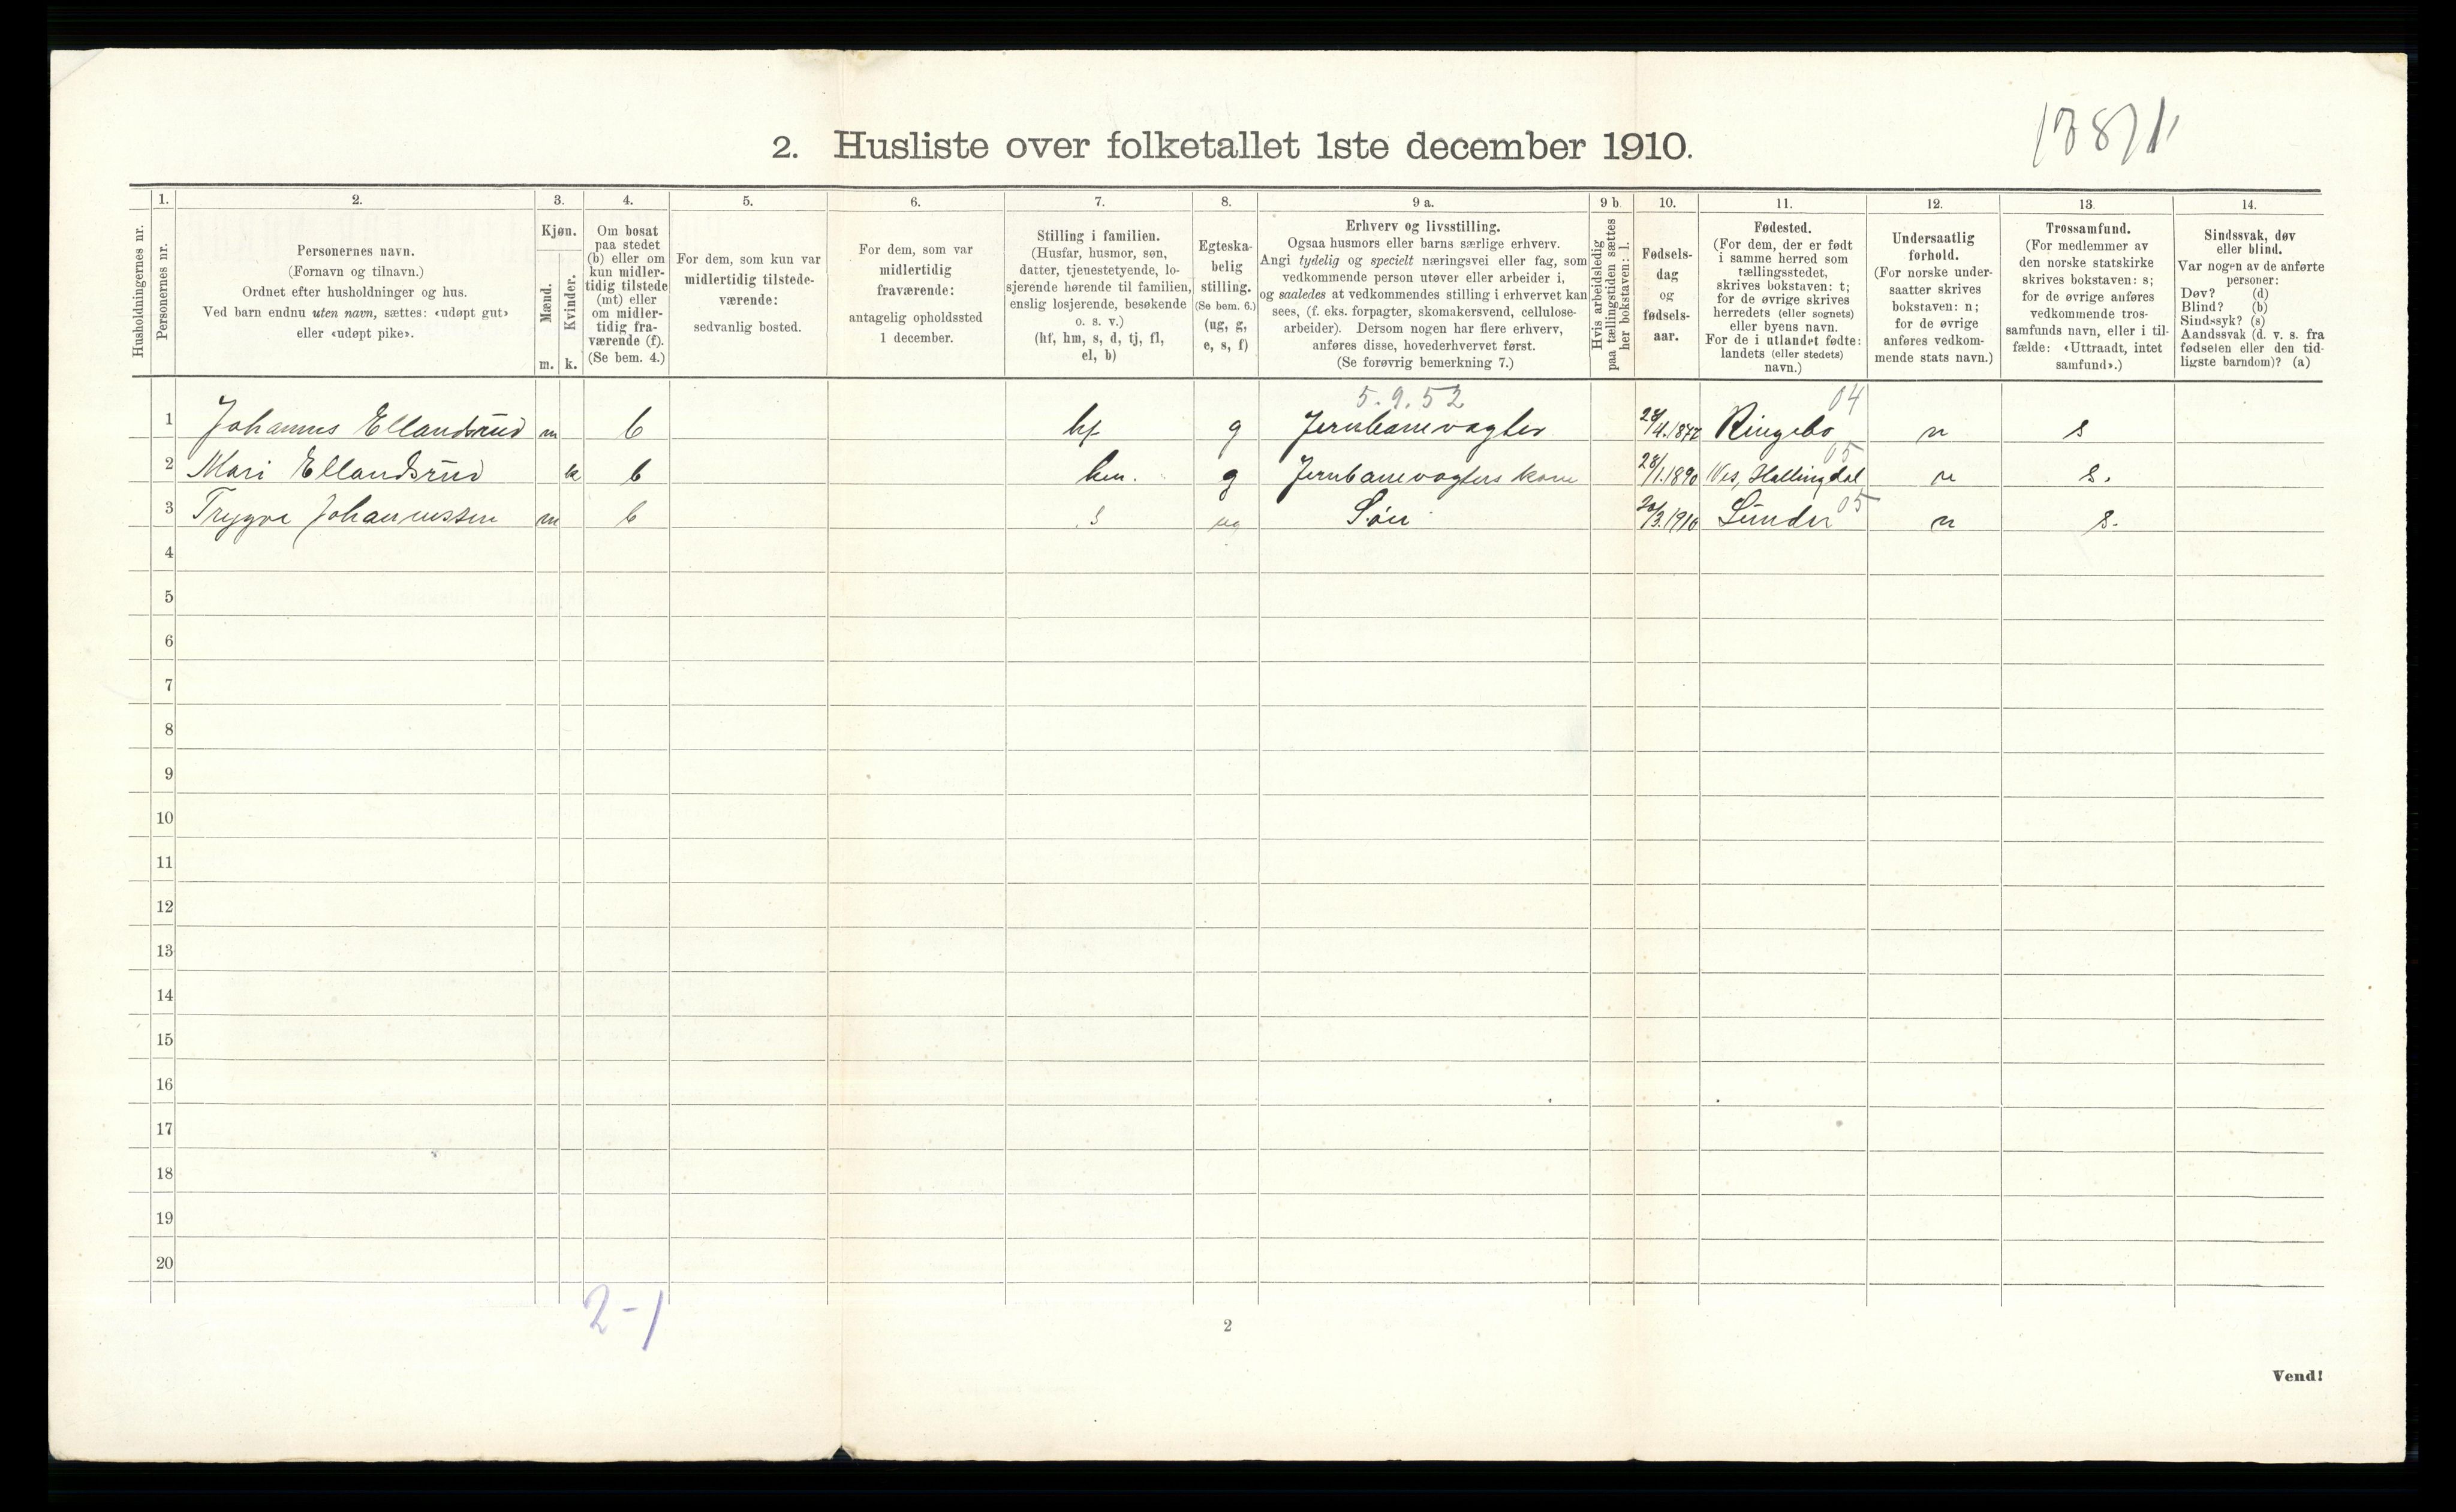 2. Husliste over folketallet 1ste december 1910.
Husholdningernes nr.
1.
Personernes nr.
2.
Personernes navn.
(Fornavn og tilnavn.)
Ordnet efter husholdninger og hus.
Ved barn endnu uten navn, sættes: «udøpt gut»
eller «udøpt pike».
3.
Kjøn.
Mænd.
m.
Kvinder.
k.
4.
Om bosat
paa stedet
(b) eller om
kun midler-
tidig tilstede
(mt) eller
om midler-
tidig fra-
værende (f).
(Se bem. 4.)
5.
For dem, som kun var
midlertidig tilstede-
værende:
sedvanlig bosted.
6.
For dem, som var
midlertidig
fraværende:
antagelig opholdssted
1 december.
7.
Stilling i familien.
(Husfar, husmor, søn,
datter, tjenestetyende, lo-
sjerende hørende til familien,
enslig losjerende, besøkende
o. s. v.)
(hf, hm, s, d, tj, fl,
el, b)
8.
Egteska-
belig
stilling.
(Se bem. 6.)
(ug, g,
e, s, f)
9 a.
Erhverv og livsstilling.
Ogsaa husmors eller barns særlige erhverv.
Angi tydelig og specielt næringsvei eller fag, som
vedkommende person utøver eller arbeider i,
og saaledes at vedkommendes stilling i erhvervet kan
sees, (f. eks. forpagter, skomakersvend, cellulose-
arbeider). Dersom nogen har flere erhverv,
anføres disse, hovederhvervet først.
(Se forøvrig bemerkning 7.)
9 b.
Hvis arbeidsledig
paa tællingstiden sættes
her bokstaven: l.
10.
Fødsels-
dag
og
fødsels-
aar.
11.
Fødested.
(For dem, der er født
i samme herred som
tællingsstedet,
skrives bokstaven: t;
for de øvrige skrives
herredets (eller sognets)
eller byens navn.
For de i utlandet fødte:
landets (eller stedets)
navn.)
12.
Undersaatlig
forhold.
(For norske under-
saatter skrives
bokstaven: n;
for de øvrige
anføres vedkom-
mende stats navn.)
13.
Trossamfund.
(For medlemmer av
den norske statskirke
skrives bokstaven: s;
for de øvrige anføres
vedkommende tros-
samfunds navn, eller i til-
fælde: «Uttraadt, intet
samfund».)
14.
Sindssvak, døv
eller blind.
Var nogen av de anførte
personer:
Døv? (d)
Blind? (b)
Sindssyk? (s)
Aandssvak (d. v. s. fra
fødselen eller den tid-
ligste barndom)? (a)
5.9.52 04
1 Johannes Ellandsrud m b hf g Jernbanevagter /4.1872 Ringebo n s
05
2 Mari Ellandsrud k b hm. g Jernbanevagters kone 28/1.1890 Nes, Hallingdal n s.
05
3 Trygve Johannessen m b s ug Søn /3.1910 Lunder n s.
4
5
6
7
8
9
10
11
12
13
14
15
16
17
18
19
20
2-1
2
Vend!